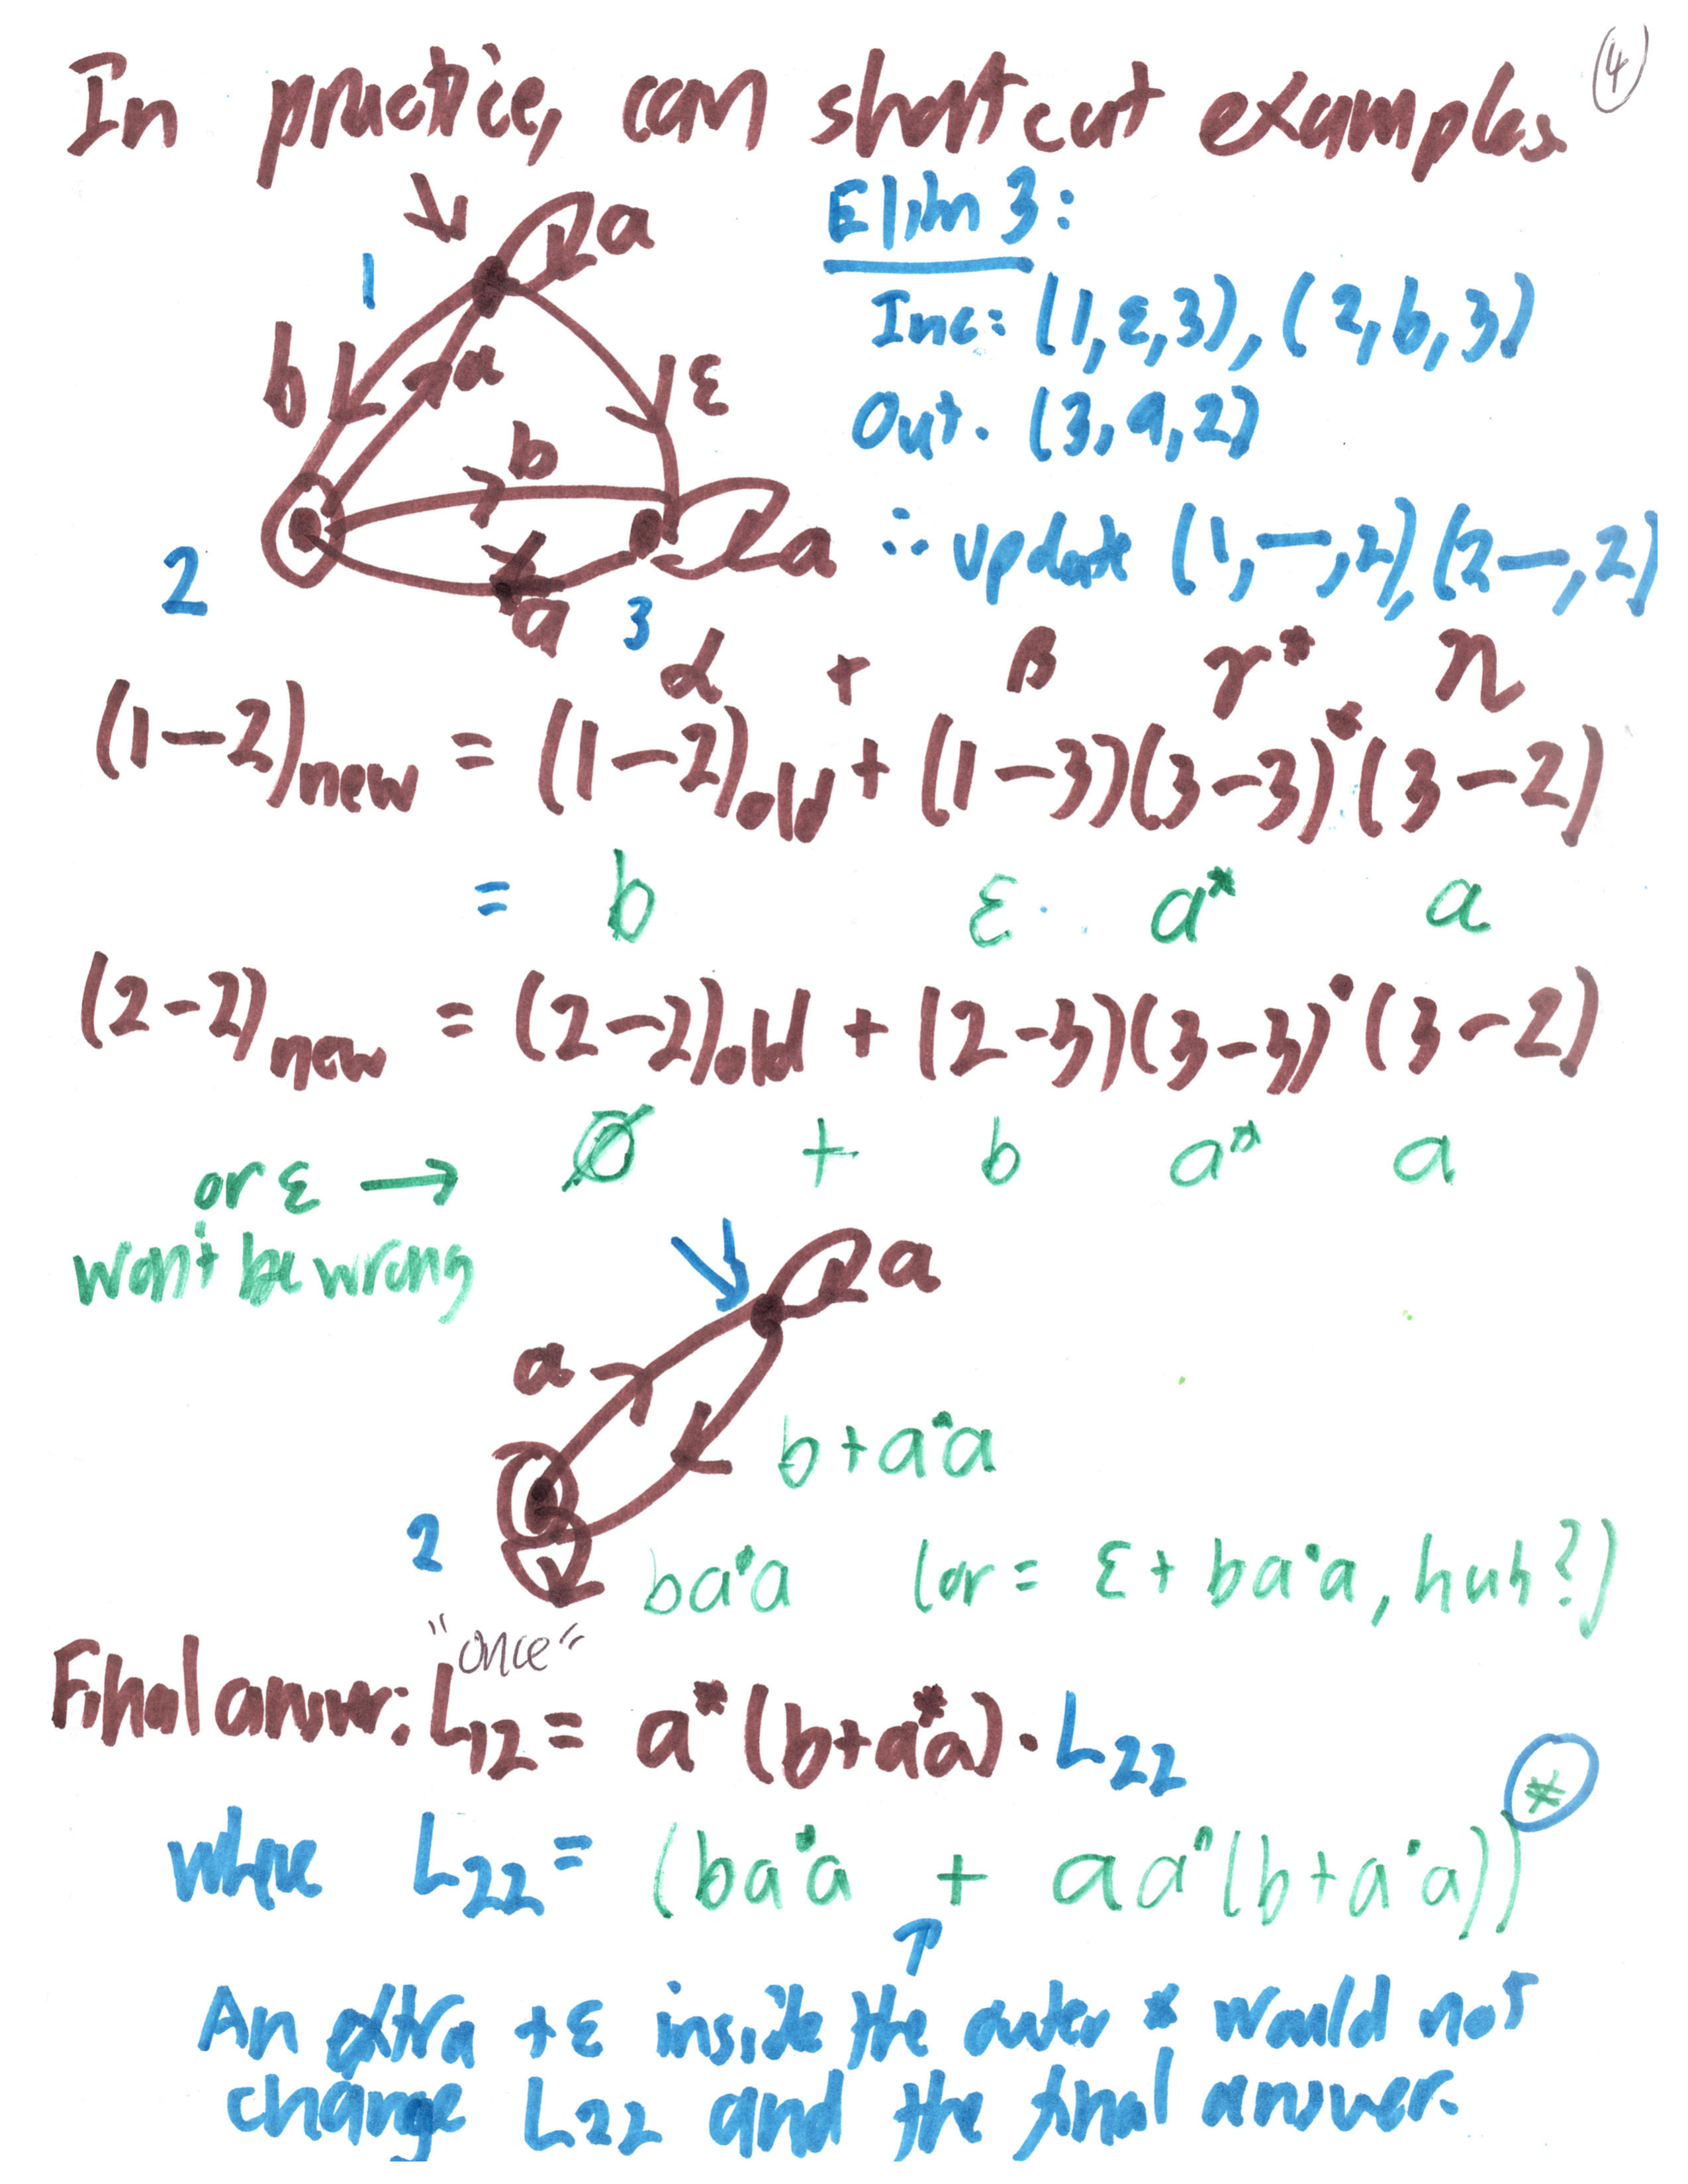 4
In practice, can shortcut examples
a
Elim 3:
1
Inc: (1,ε,3), (2,b,3)
b a ε
Out. (3,a,2)
b
a
∴ update (1,—,2), (2—,2)
2
a 3
α + β γ* η
(1-2)new = (1-2)old + (1-3)(3-3)*(3-2)
= b ε· a* a
(2-2)new = (2-2)old + (2-3)(3-3)*(3-2)
∅ + b a* a
or ε →
won't be wrong
a
a
b+a*a
2
ba*a (or = ε + ba*a, huh?)
"once"
Final answer: L12 = a*(b+a*a)·L22
where L22 = (ba*a + aa*(b+a*a))*
↑
An extra +ε inside the outer * would not
change L22 and the final answer.